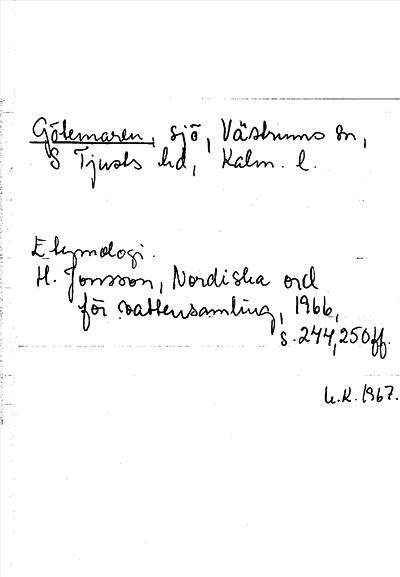 Götemaren, sjö, Västrums sn,
S Tjusts hd, Kalm. l.
Etymologi.
H. Jonsson, Nordiska ord
för vattensamling, 1966,
s. 244, 250ff.
U.K. 1967.